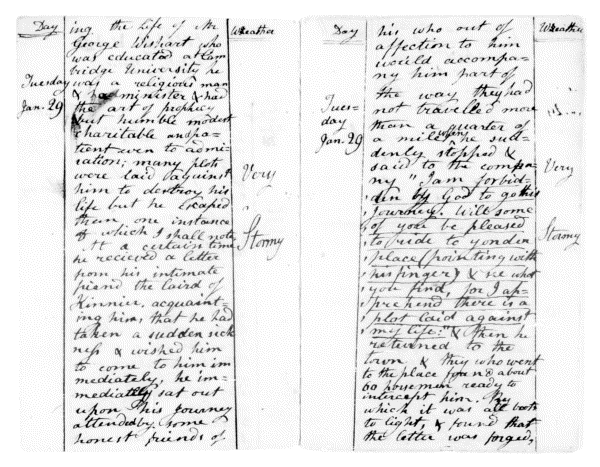 Day
ing the life of Mr
Weather
George Wishart who
was educated at Cam
bridge University he
Tuesday
was a religious man
Jan. 29
& had minister & had
the art of prophecy
but humble modest
charitable and pa-
tient even to admi-
ration; many plots
were laid against
Very
him to destroy his
life but he escaped
them, one instance
of which I shall note
Stormy
At a certain time
he recieved a letter
from his intimate
friend the laird of
Kinnier, acquaint-
ing him, that he had
taken a sudden sick
ness & wished him
to come to him im
mediately, he im-
mediately sat out
upon his journey
attended by some
honest friends of
Day
his who out of
Weather
affection to him
would accompa-
ny him part of
the way they had
Tues-
not travelled more
day
than a quarter of
Jan. 29
a mile when he sud-
denly stopped &
said to the compa-
Very
ny "I am forbid-
den by God to go this
Journey. Will some
of you be pleased
Stormy
to ride to yonder
place (pointing with
his finger) & see what
you find, for I ap-
prehend there is a
plot laid against
my life:" & then he
returned to the
town & they who went
to the place found about
60 horsemen ready to
intercept him. By
which it was all both
to light, & found that
the letter was forged,